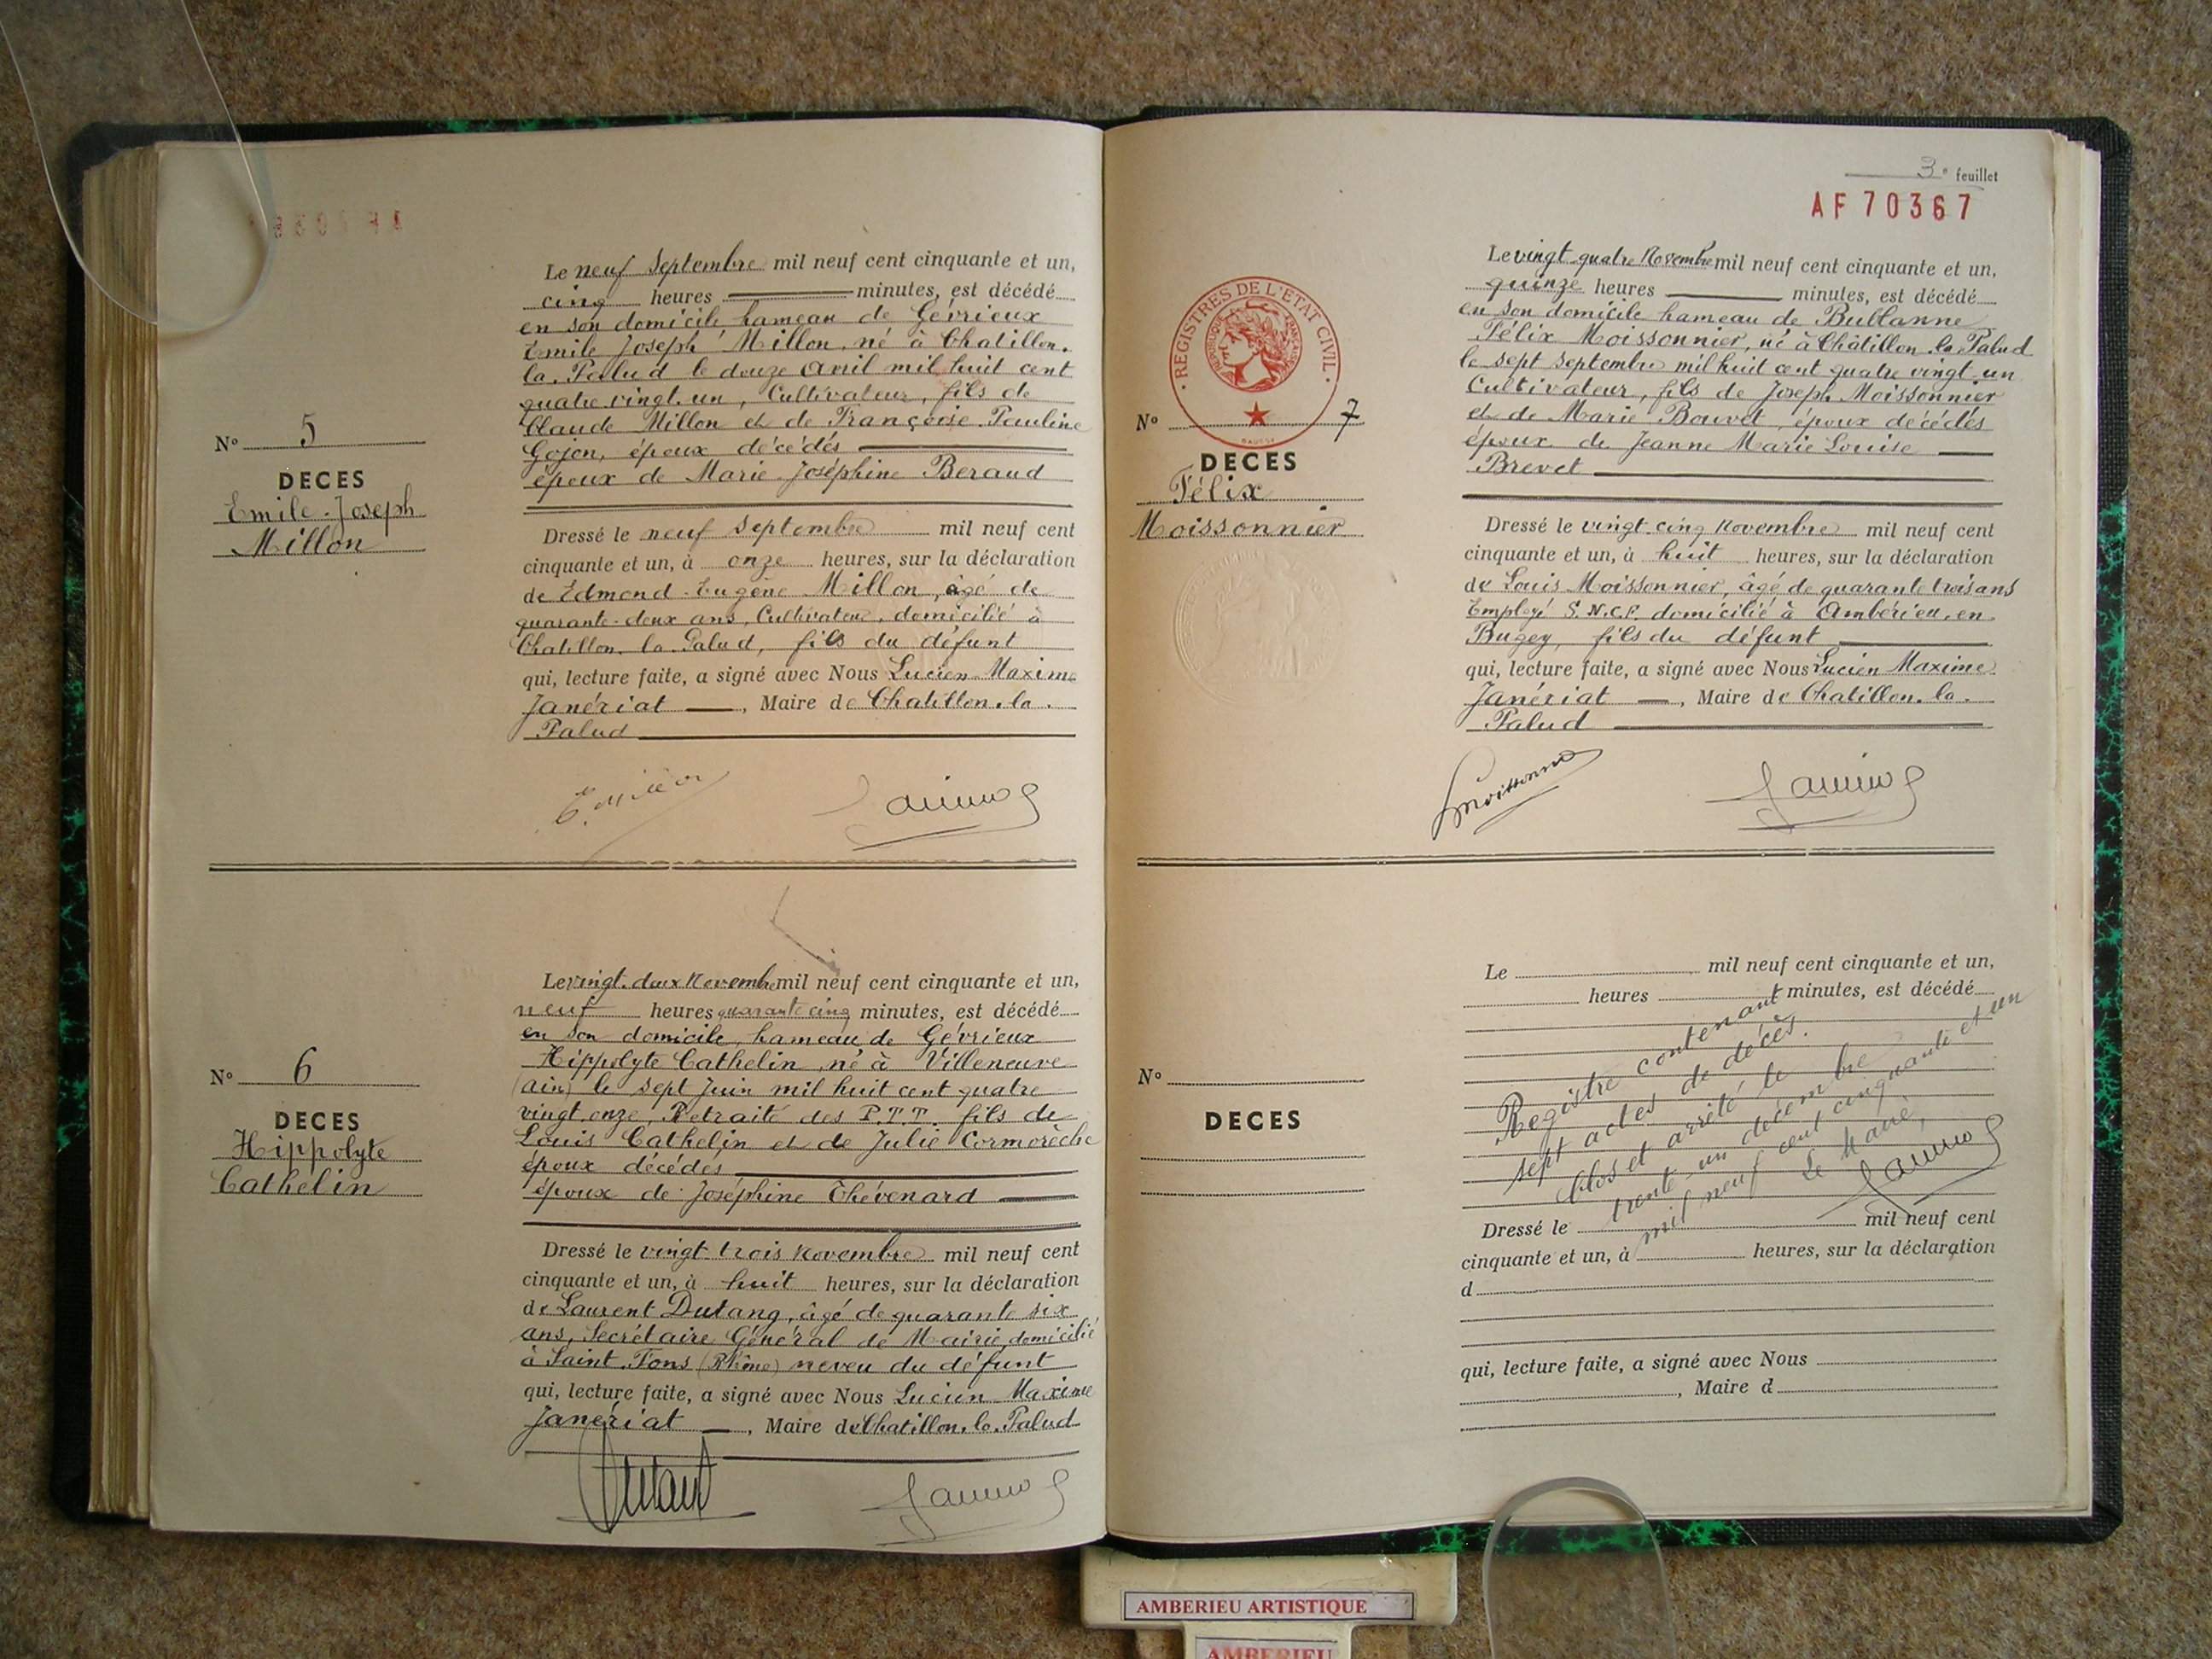 N° 5
DECES
Emile-Joseph
Millon
Le neuf Septembre mil neuf cent cinquante et un,
cinq heures minutes, est décédé
en son domicile hameau de Gévrieux
Emile Joseph Millon, né à Chatillon.
la. Palud le douze Avril mil huit cent
quatre vingt. un, Cultivateur, fils de
Claude Millon et de Françoise Pauline
Gojon, époux décédés
époux de Marie Joséphine Beraud
Dressé le neuf Septembre mil neuf cent
cinquante et un, à onze heures, sur la déclaration
de Edmond-Eugène Millon, âgé de
quarante-deux ans, Cultivateur, domicilié à
Chatillon. la. Palud, fils du défunt
qui, lecture faite, a signé avec Nous Lucien Maxime
Janériat, Maire de Chatillon. la.
Palud
N° 6
DECES
Hippolyte
Cathelin
Le vingt. deux Novembre mil neuf cent cinquante et un,
neuf heures quarante cinq minutes, est décédé
en son domicile, hameau de Gévrieux
Hippolyte Cathelin, né à Villeneuve
(ain) le sept Juin mil huit cent quatre
vingt. onze, Retraité des P.T.T. fils de
Louis Cathelin et de Julie Cormorèche
époux décédés
époux de Joséphine Thévenard
Dressé le vingt trois Novembre mil neuf cent
cinquante et un, à huit heures, sur la déclaration
de Laurent Dutang, âgé de quarante six
ans, Secrétaire Général de Mairie, domicilié
à Saint. Fons (Rhône) neveu du défunt
qui, lecture faite, a signé avec Nous Lucien Maxime
Janériat, Maire de Chatillon. la. Palud
3e feuillet
AF 70367
REGISTRES DE L'ETAT CIVIL
N° 7
DECES
Félix
Moissonnier
Le vingt-quatre Novembre mil neuf cent cinquante et un,
quinze heures minutes, est décédé
en son domicile hameau de Bublanne
Félix Moissonnier, né à Châtillon. la Palud
le sept Septembre mil huit cent quatre vingt. un
Cultivateur, fils de Joseph Moissonnier
et de Marie Bouvet, époux décédés
époux de Jeanne Marie Louise
Brevet
Dressé le vingt. cinq Novembre mil neuf cent
cinquante et un, à huit heures, sur la déclaration
de Louis Moissonnier, âgé de quarante trois ans
Employé S.N.C.F. domicilié à Ambérieu. en
Bugey, fils du défunt
qui, lecture faite, a signé avec Nous Lucien Maxime
Janériat, Maire de Chatillon. la.
Palud
N°
DECES
Le mil neuf cent cinquante et un,
heures minutes, est décédé
Registre contenant
sept actes de décès.
Clos et arrêté le
trente-un décembre
mil neuf cent cinquante et un
Le Maire,
Dressé le mil neuf cent
cinquante et un, à heures, sur la déclaration
d
qui, lecture faite, a signé avec Nous
, Maire d
AMBERIEU ARTISTIQUE
AMBERIEU